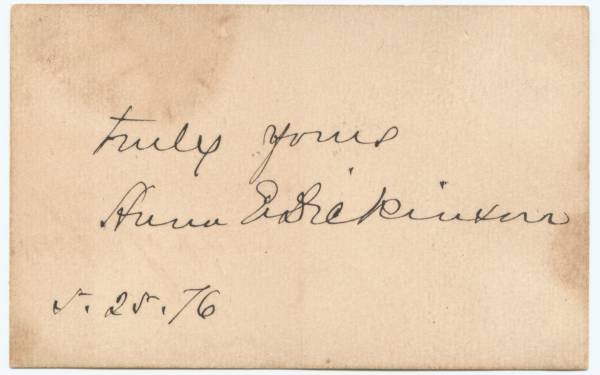 truly yours
Anna E. Dickinson
5. 25. 76